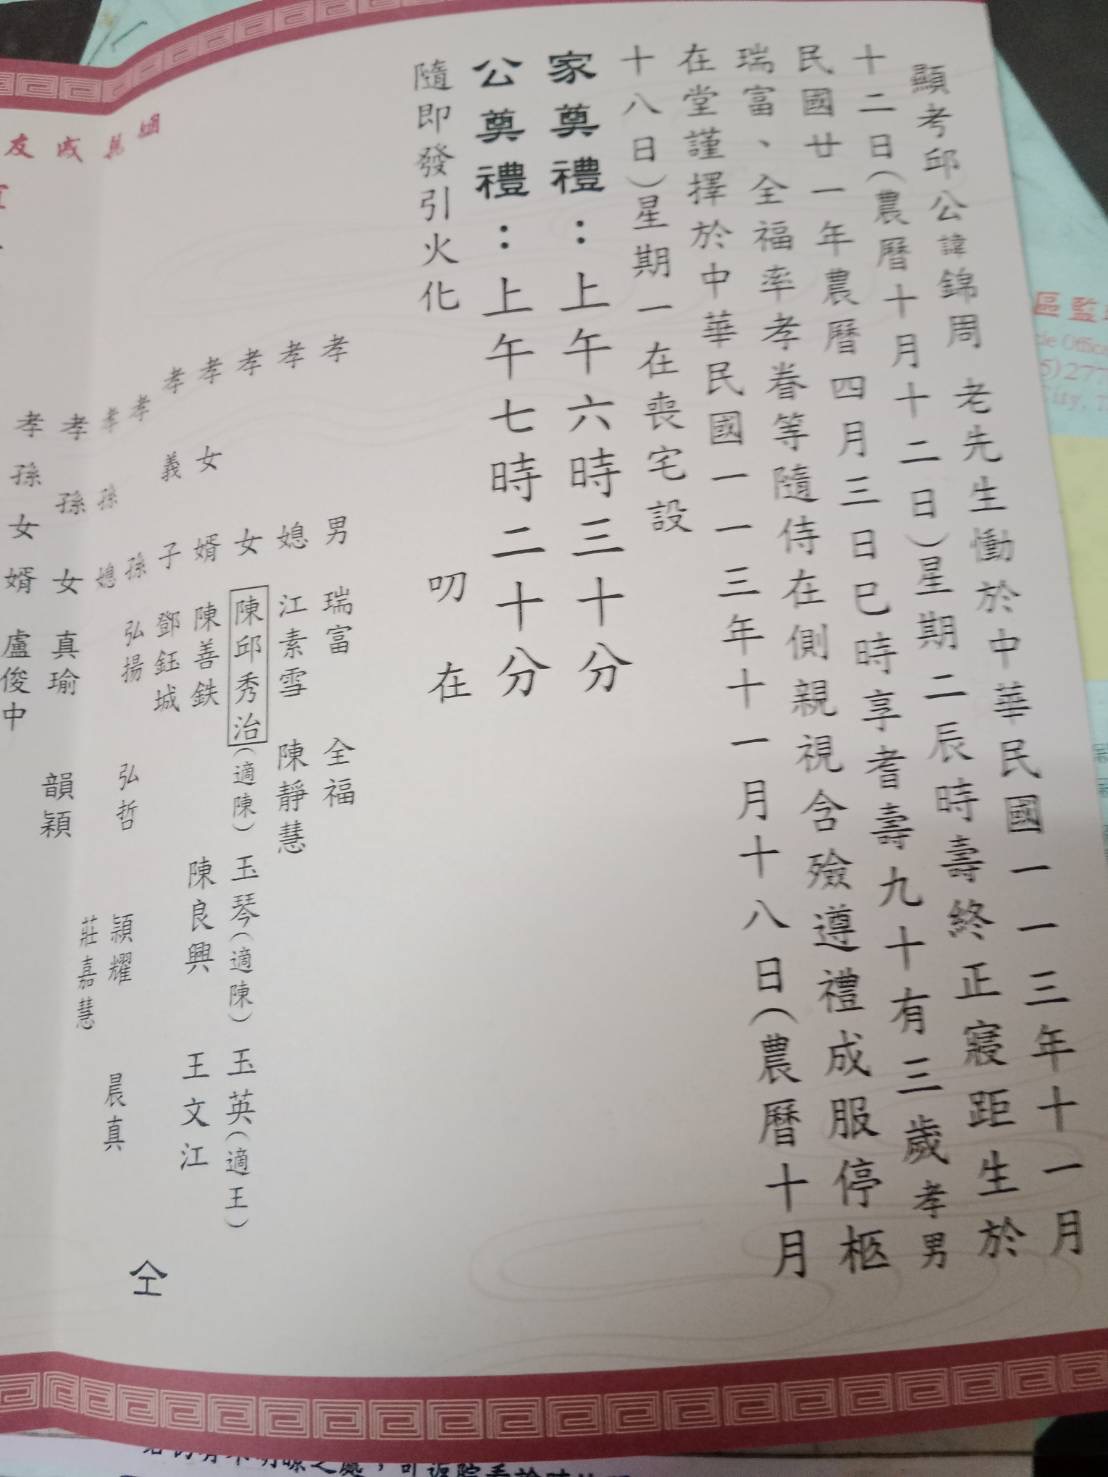 顯考邱公諱錦周 老先生慟於中華民國一一三年十一月
十二日(農曆十月十二日)星期二辰時壽終正寢距生於
民國廿一年農曆四月三日巳時享耆壽九十有三歲孝男
瑞富、全福率孝眷等隨侍在側親視含殮遵禮成服停柩
在堂謹擇於中華民國一一三年十一月十八日(農曆十月
十八日)星期一在喪宅設
家奠禮：上午六時三十分
公奠禮：上午七時二十分
隨即發引火化
叨在
孝男 瑞富 全福
孝媳 江素雪 陳靜慧
孝女 陳邱秀治(適陳) 玉琴(適陳) 玉英(適王)
孝女婿 陳善鉄 陳良興 王文江
孝義子 鄧鈺城
孝孫 弘揚 弘哲 穎耀 晨真
孝孫媳 莊嘉慧
孝孫女 真瑜 韻穎
孝孫女婿 盧俊中
仝
戚
友
區監
Office
5)277
City, 7